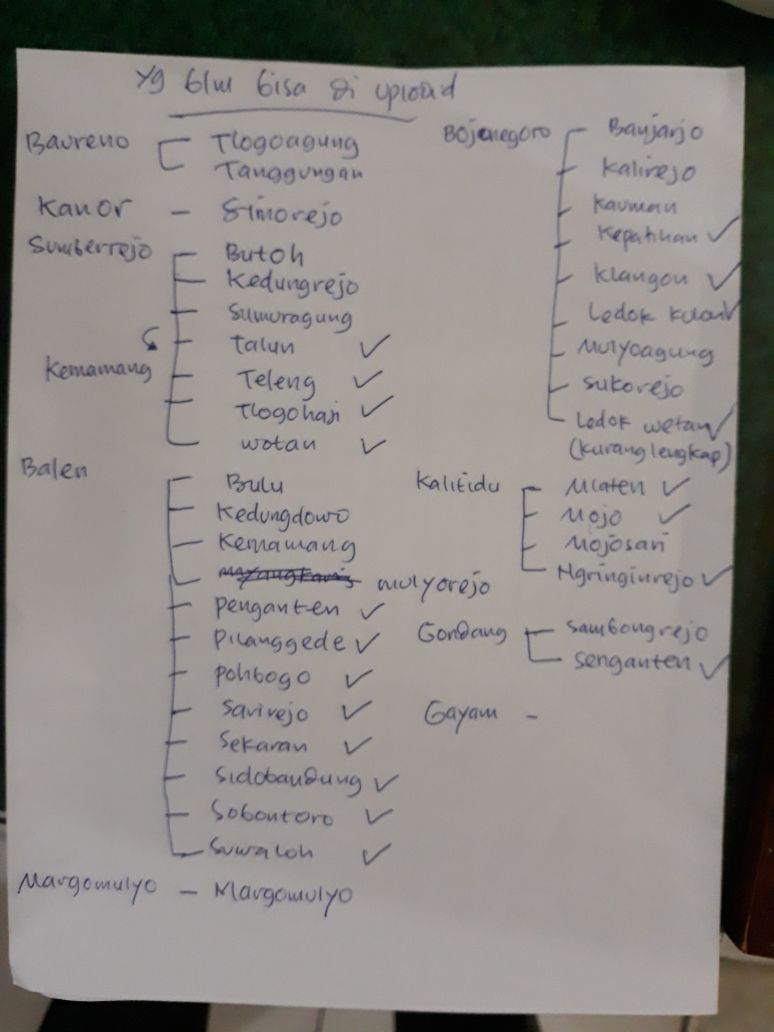 yg blm bisa di upload
Baureno Tlogoagung
Tanggungan
Kanor - Simorejo
Sumberrejo Butoh
Kedungrejo
Sumuragung
Talun ✓
Kemamang Teleng ✓
Tlogohaji ✓
Wotan ✓
Balen Bulu
Kedungdowo
Kemamang
mulyorejo
Penganten ✓
Pilanggede ✓
Pohbogo ✓
Sarirejo ✓
Sekaran ✓
Sidobandung ✓
Sobontoro ✓
Suwaloh ✓
Margomulyo - Margomulyo
Bojonegoro Banjarjo
Kalirejo
Kauman
Kepatihan ✓
Klangon ✓
Ledok Kulon ✓
Mulyoagung
Sukorejo
Ledok wetan ✓
(Kurang lengkap)
Kalitidu Mlaten ✓
Mojo ✓
Mojosari
Ngringinrejo ✓
Gondang Sambongrejo
Senganten ✓
Gayam -